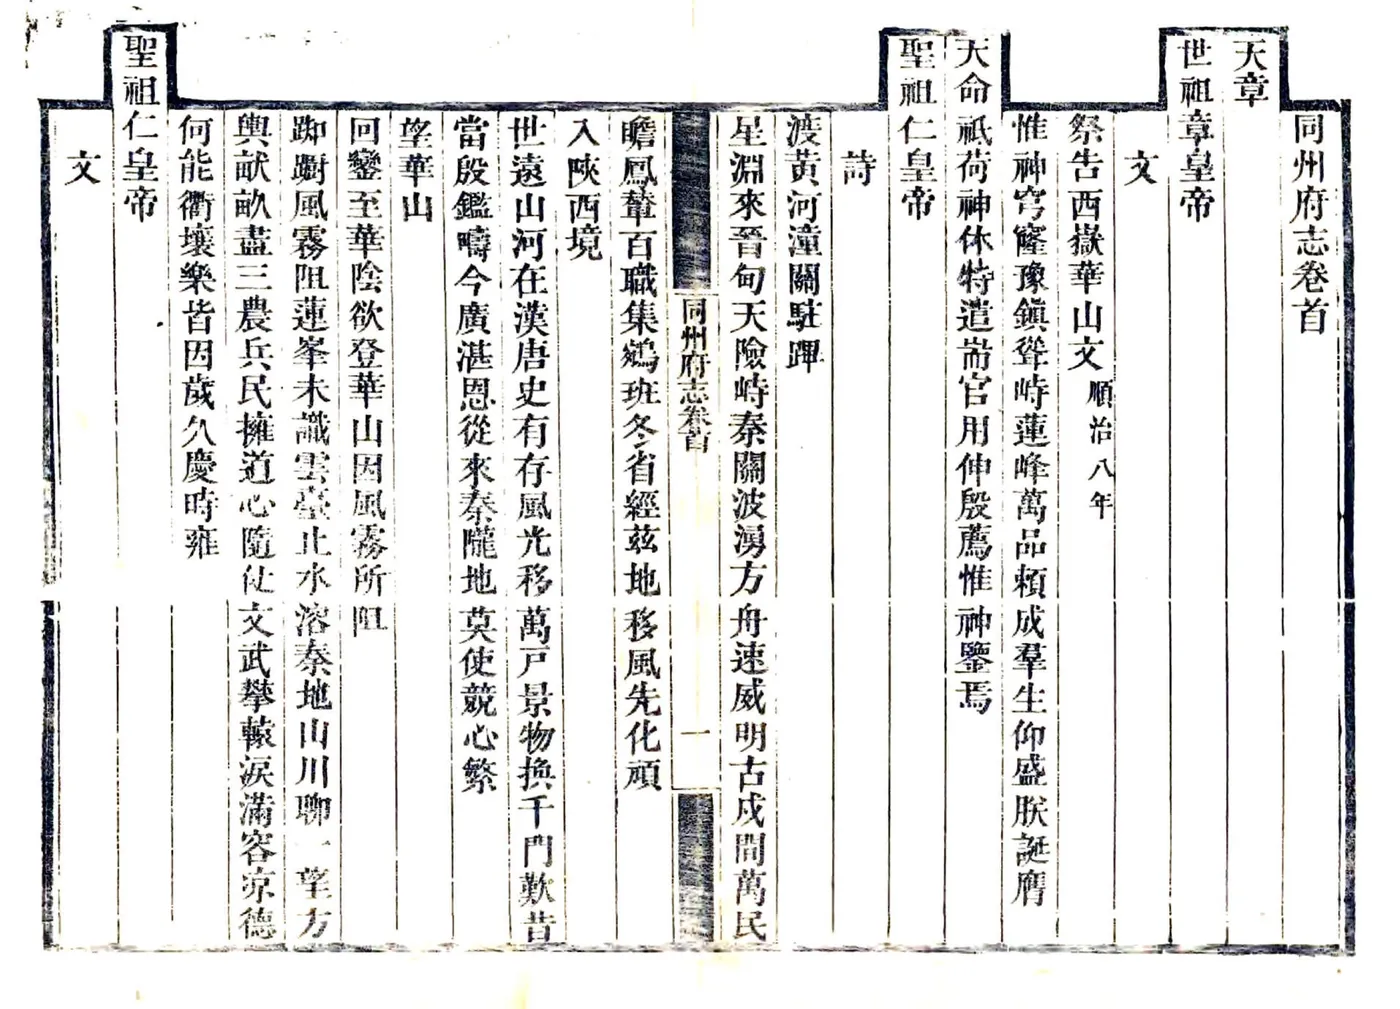 同州府志卷首
天章
世祖章皇帝
文
祭告西嶽華山文 順治八年
惟神穹窿豫鎮聳峙蓮峰萬品賴成羣生仰盛朕誕膺
天命祇荷神休特遣耑官用伸殷薦惟神鑒焉
聖祖仁皇帝
詩
渡黃河潼關駐蹕
星淵來晉甸天險峙秦關波湧方舟速威明古戍間萬民
瞻鳳輦百職集鵷班冬省經兹地移風先化頑
入陝西境
世遠山河在漢唐史有存風光移萬戸景物換千門歎昔
當殷鑑疇今廣湛恩從來秦隴地莫使競心繁
望華山
回鑾至華陰欲登華山因風霧所阻
踟躕風霧阻蓮峯未識雲臺止水溶秦地山川聊一望方
輿献畝盡三農兵民擁道心隨仗文武攀轅淚滿容凉德
何能衢壤樂皆因歲久慶時雍
聖祖仁皇帝
文
同州府志卷首
一